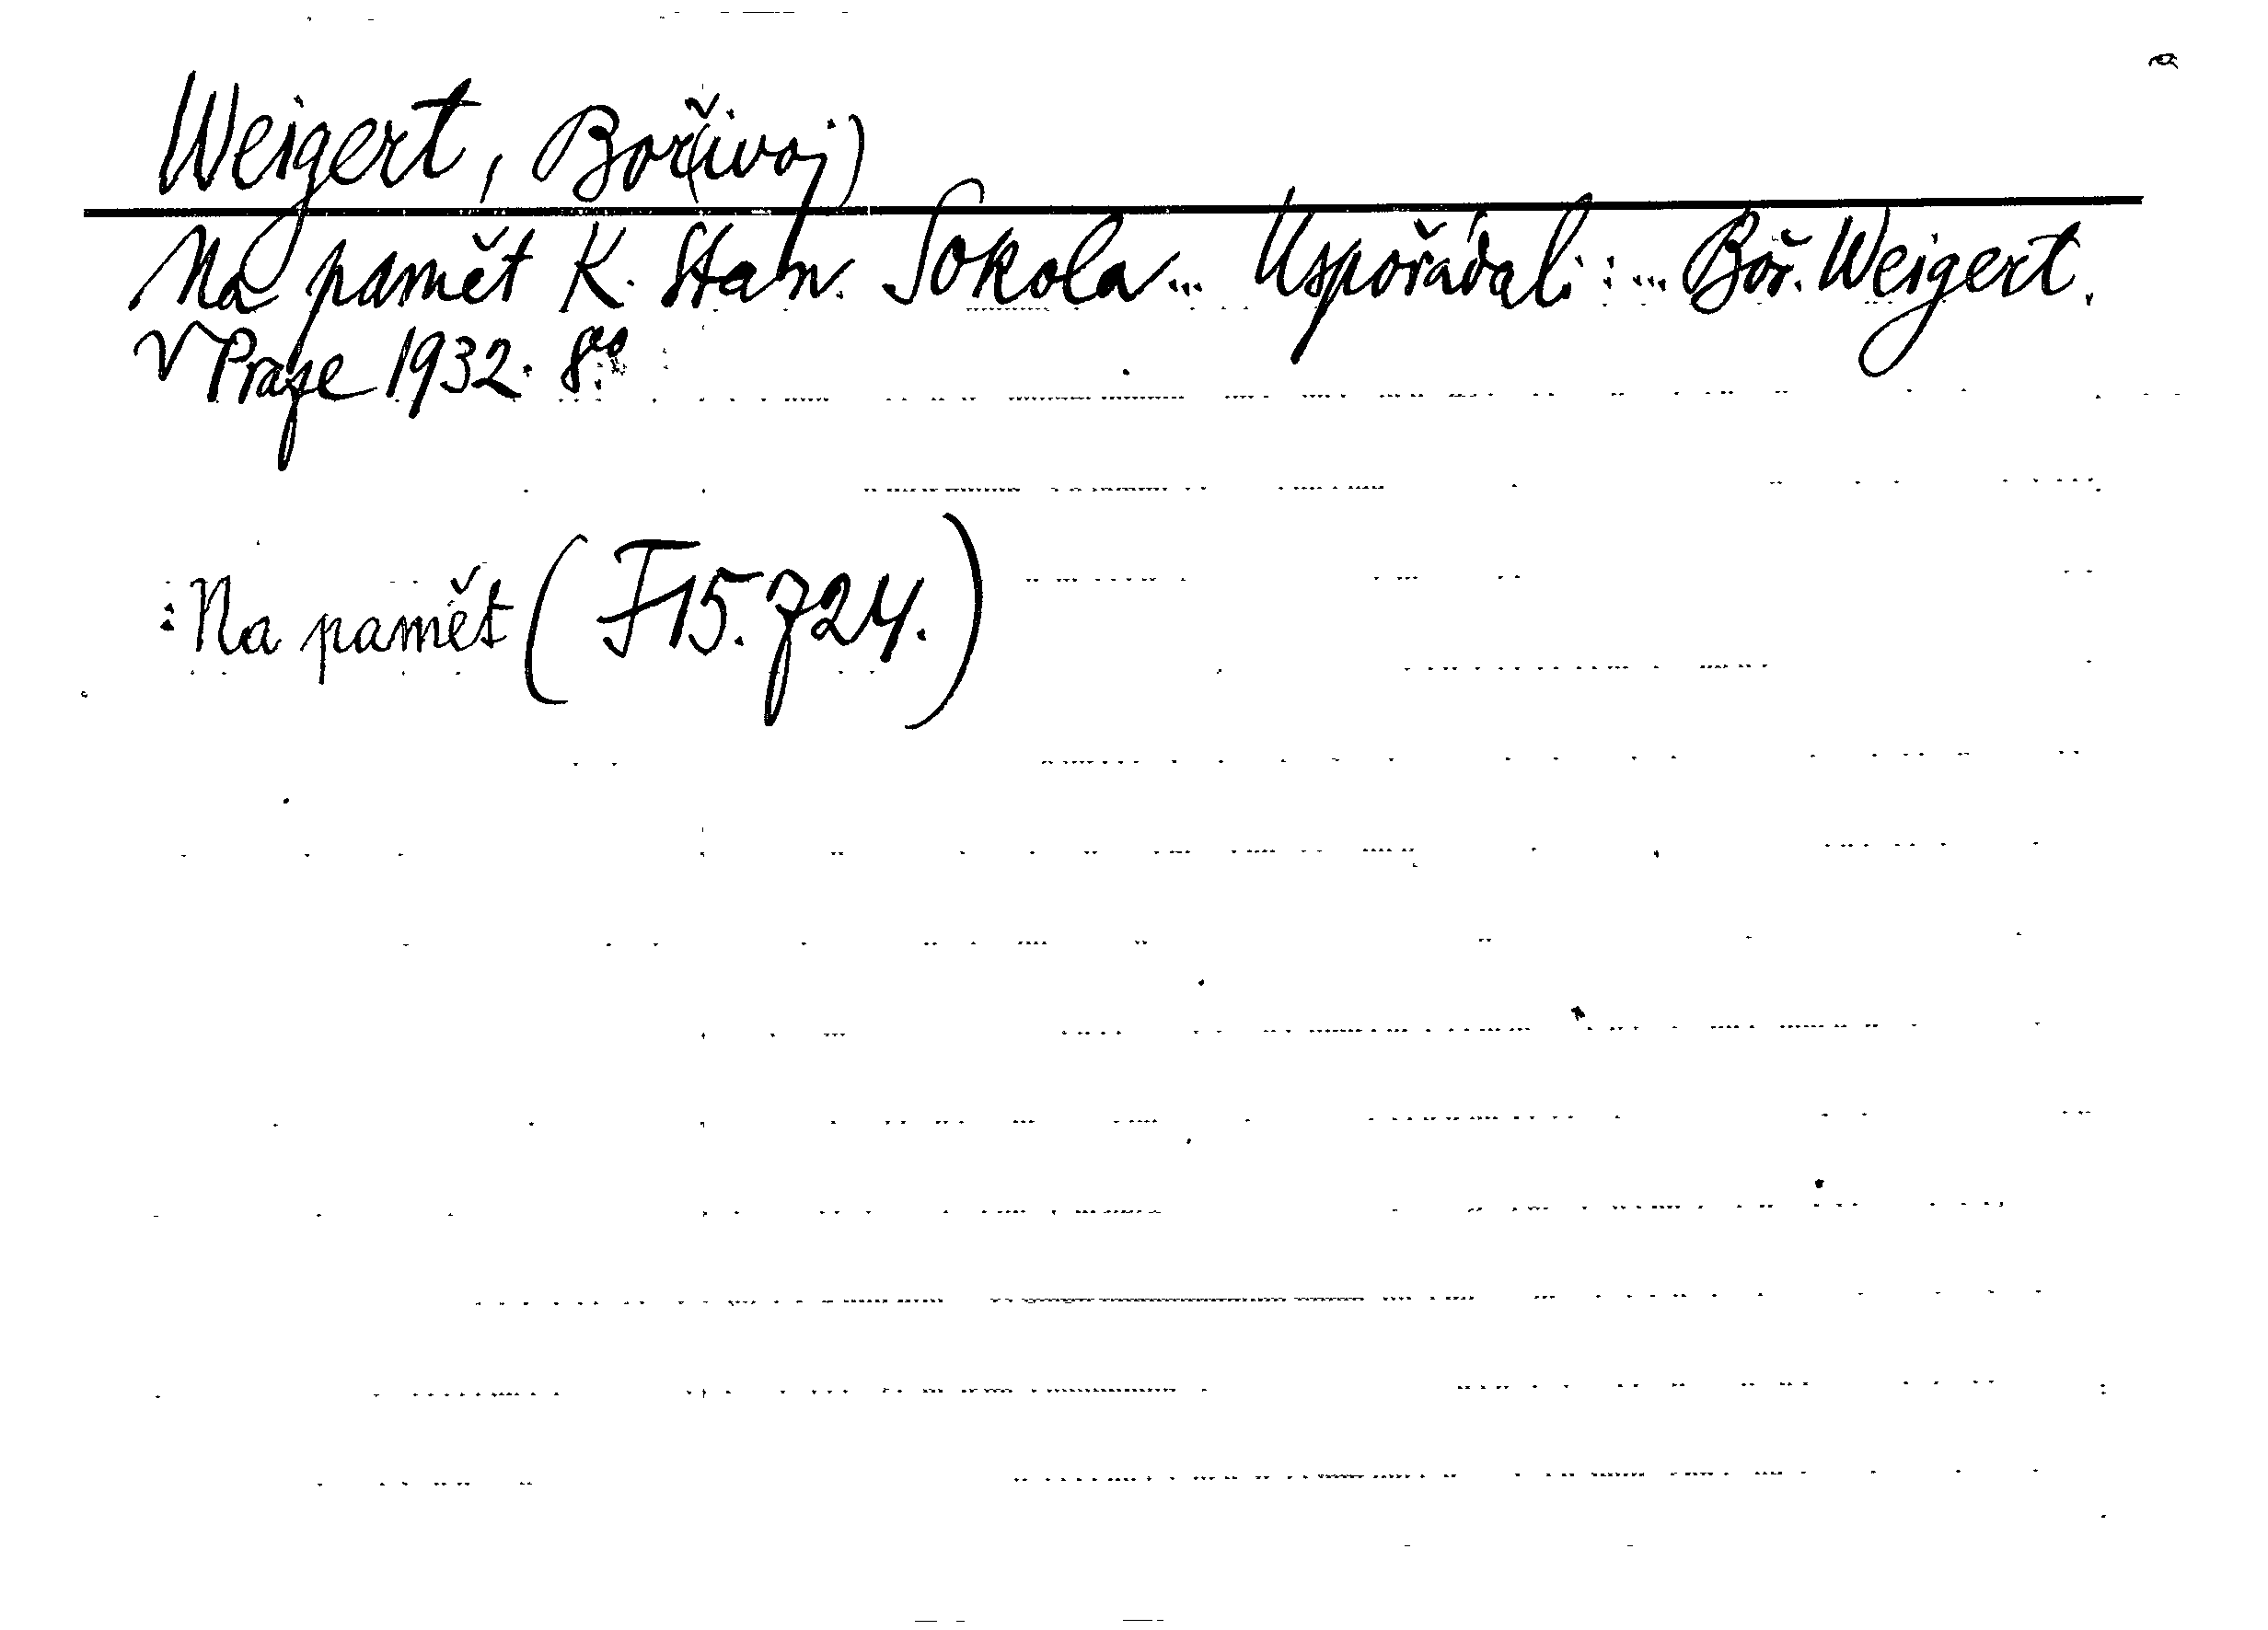 Weigert, Boř(ivoj)
Na pamět K. Stan. Sokola... Uspořádali:... Boř. Weigert.
V Praze 1932. 8°.
: Na pamět (F15.724.)